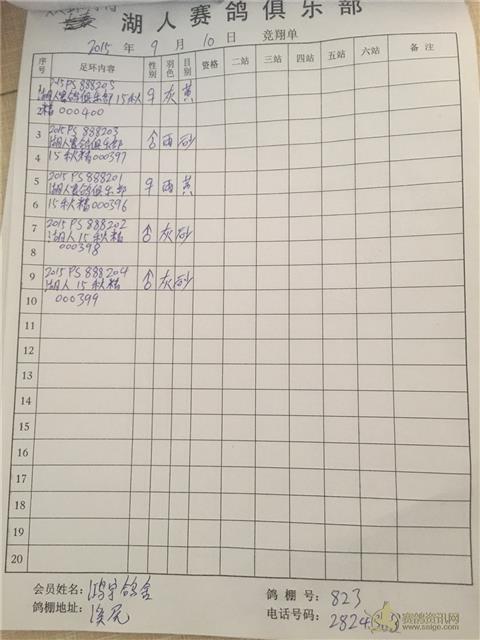 湖人赛鸽俱乐部
2015 年 9 月 10 日 竞翔单
序号 足环内容 性别 羽色 目别 资格 二站 三站 四站 五站 六站 备注
1 2015 PS 888205 ♀ 灰 黄
湖人赛鸽俱乐部 15 秋
2 棚 000400
3 2015 PS 888203 ♂ 雨 砂
湖人赛鸽俱乐部
4 15 秋棚 000397
5 2015 PS 888201 ♀ 雨 黄
湖人赛鸽俱乐部
6 15 秋棚 000396
7 2015 PS 888202 ♂ 灰 砂
湖人 15 秋棚
8 000398
9 2015 PS 888204 ♂ 灰 砂
湖人 15 秋棚
10 000399
11
12
13
14
15
16
17
18
19
20
会员姓名: 鸿宇鸽舍 鸽棚号: 823
鸽棚地址: 电话号码: 2824
赛鸽资讯网
www.saige.com